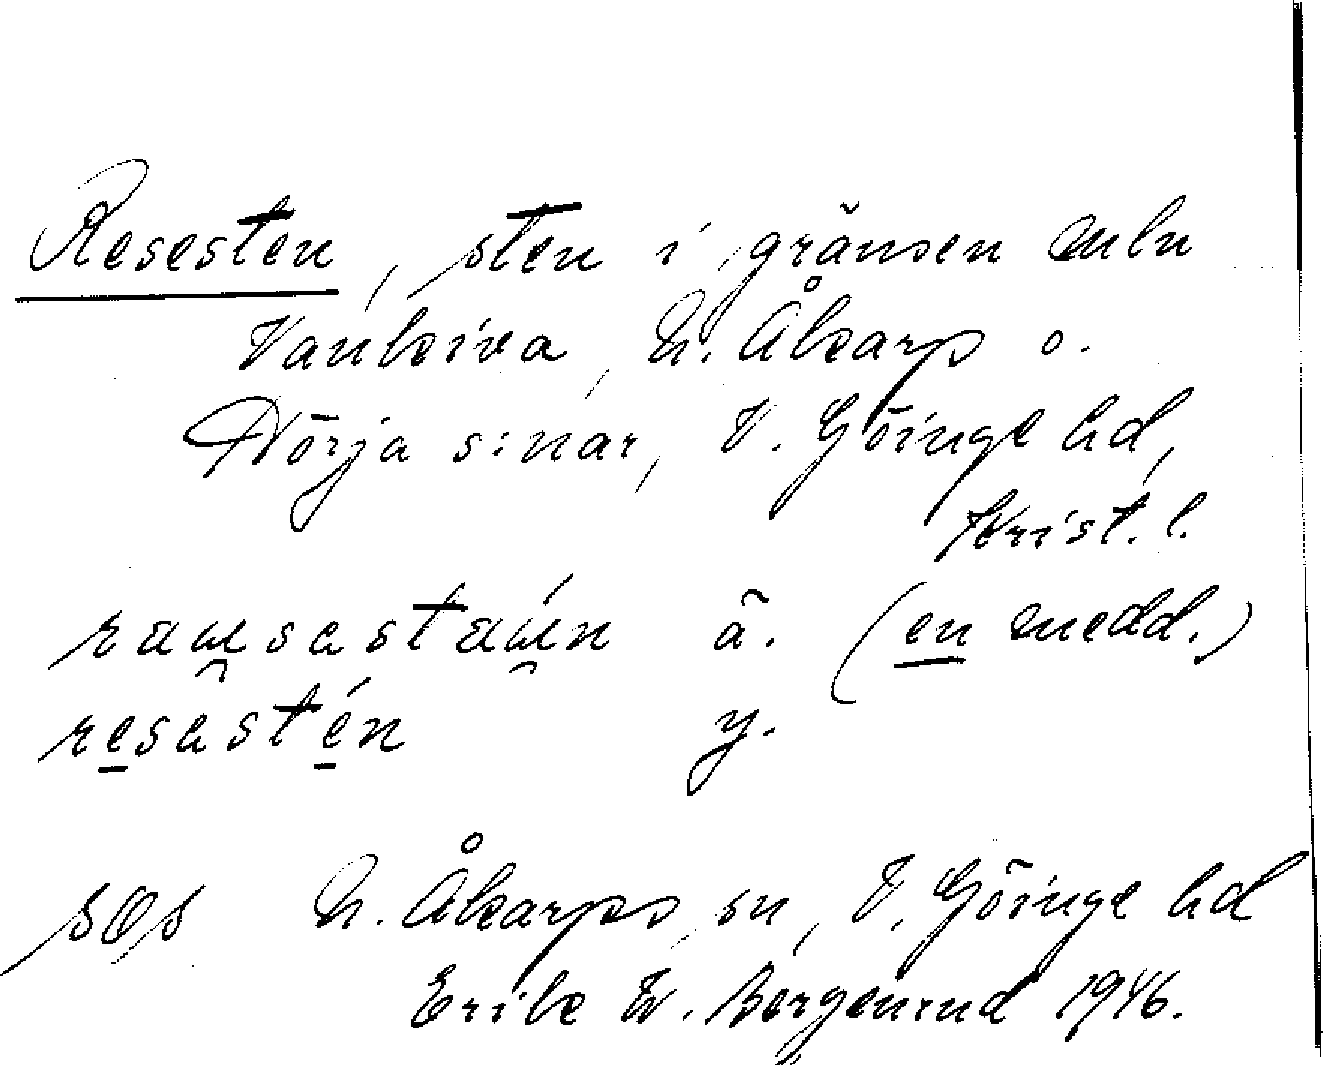 Resesten, sten i gränsen mln
Vankiva, N. Åkarps o.
Nörja s:nar, V. Göinge hd,
Krist. l.
ä. (en medd.)
resastén y.
N. Åkarps sn, V. Göinge hd
Erik W. Bergenrud 1946.